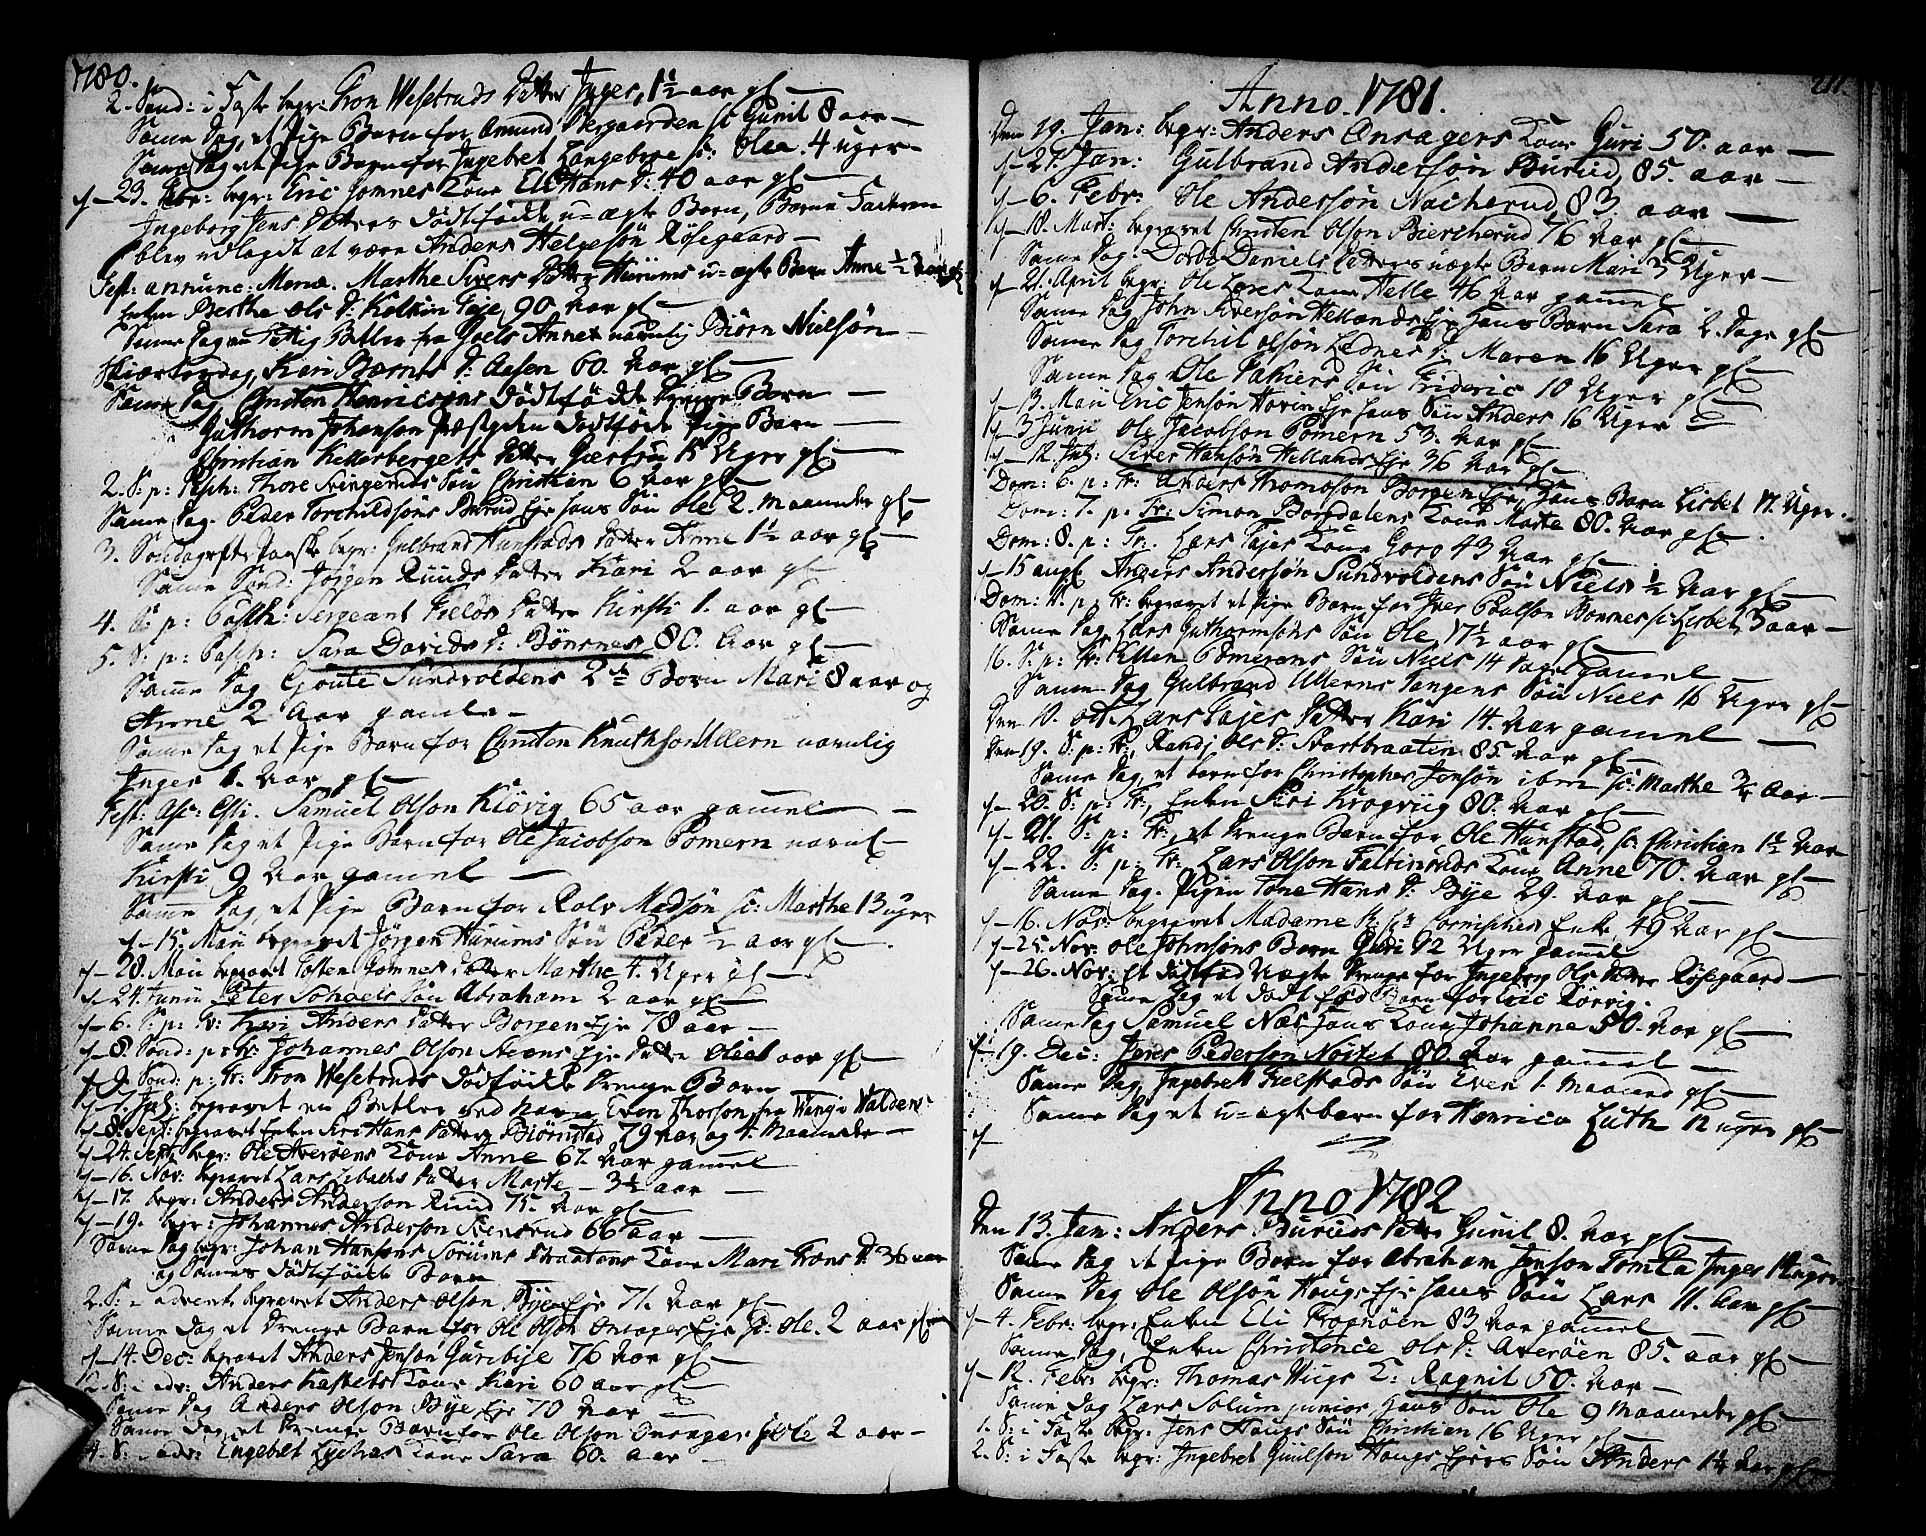 1780.
2. Sønd: i Faste begr: Tron Wesetruds datter Inger, 1½ aar gl
Samme dag, et Pige Barn for Amund Nergaarden sc: Gunil 8 aar
Samme dag et Pige Barn for Ingebret Langeberg sc: Olea. 4 uger
d 23. Febr: begr: Eric Gomnes Kone Eli Hans d: 40 aar gl
Ingeborg Jens datters dödfödde u=ægte Barn, Barne Faderen
blev udlagdt at være Anders Helgesön Røsegaard
Fest: annunc: Mariæ. Marthe Sivers datter Hurums u=ægte Barn Anne ½ aar gl
Enken Berthe Ols d: Eje 90 Aar gl
Samme dag en Betler fra navnlig Biørn Nielsön
Skiærtorsdag, Kari d: Aasen 60. Aar gl
Samme dag Christen Henricsens dödfödde Drenge Barn
Guthorm Johansen dödföde Pige Barn
Christian Kelterbergets datter Giertru 15 Uger gl
2. S: p: Pasch: Thore Svingernes Sön Christian 6 Aar gl
Samme dag. Peder Torchildsöns Burud Eje hans Sön Ole 2. maaneder gl
3. Søndag efter Paaske begr: Gulbrand Hunstads datter Anne 1½ aar gl
Samme Sønd: Jørgen Ruuds datter Kari 2 aar gl
4. S: p: Pasch: Sergeant datter Kirsti 1. aar gl
5. S: p: Pasch: Sara Davids d: Bönsnes 80. Aar gl
Samme dag Goute Sundvoldens 2de Børn Mari 8 aar og
Anne 2 Aar gamle
Samme dag et Pige Barn for Christen Knuthson Ullern navnlig
Inger 1. Aar gl
Fest: Asc: Christi. Samuel Olson Klövig 65 aar gammel
Samme dag et Pige Barn for Ole Jacobson Pomern navnl
Kirsti 9 Aar gammel
Samme dag, et Pige Barn for Rolv Madsön sc: Marthe 13 uger
d 15. Maii begravet Jörgen Hurums Sön Peder ½ aar gl
d 28. Maii begravet Tosten Gomnes datter Marthe 4. Uger gl
d 24 Junii Peter Schaels Sön Abraham 2 aar gl
d 6. S: p: Tr: Kari Anders datter Borgen Eje 78 aar
d 8. Sønd: p: Tr: Johannes Olson Steens Eje datter Olia 1 aar gl
d 9. Sønd: p: Tr: Tron Wesetruds dödfödde Drenge Barn
d 7. Jul: begravet en Betler ved navn Even Thorson fra Wang i Walders
d 8. Sept: begravet Enken Siri Hans datter Biørnstad 79 Aar og 4. Maaneder
d 24. Sept: begr: Ole Averøens Kone Anne 67. Aar gammel
d 16. Nov: begravet Lars Lebachs datter Marte 3½ aar
d 17. begr: Anders Anderson Ruud 75. Aar gl
d 19. begr: Johannes Anderson Svensrud 66 aar
Samme dag begr: Johan Hansens Sörums Braatens Kone Mari Trons d: 36 aar
og Sammes dödfödde Barn
2. S: i advent begravet Anders Olson Bye Eje 71. Aar gl
Samme dag et Drenge Barn for Ole Olson Onsager Eje sc: Ole. 2 aar gl
d 14. Dec: begravet Anders Jenson Guribye 76 Aar gl
2. S: i adv: Anders Kastets Kone Kari 60 aar gl
Samme dag Anders Olson Bye Eje 70 Aar
Samme dag, et Drenge Barn for Ole Olson Onsager sc: Ole 2 aar
4. S: i adv: Engebet Lychas Kone Sara 60. aar
211
Anno 1781.
Den 19. Jan: begr: Anders Onsagers Kone Guri 50. aar
d 27. Jan: Gulbrand Andersön Burud, 85. aar
d 6. Febr: Ole Andersön Nacherud 83. aar
d 18. Mart: begravet Christen Olson Biercherud 76 Aar gl
Samme dag. Dorde Daniels datters uægte Barn Mari 3 Uger
d 21. April begr: Ole Lores Kone Helle 46 Aar gammel
Samme dag John Siversön Hellands Eje hans Barn Sara 2. dage gl
Samme dag Torchil Olsön Lødnes d: Maren 16 Uger gl
Samme dag Ole Sakiers Sön Frideric 10 Uger gl
d 13. Maii Eric Jensön Hovin Eje hans Sön Anders 16 Uger
d 3 Junii Ole Jacobson Pomern 53. Aar gl
d 12. Jul: Siver Hansön Hellands Eje 36 Aar gl
Dom: 6. p: Tr: Anders Thomoson Borgen Eje, hans Barn Lisbet 17. Uger
Dom: 7. p: Tr: Simon Borgdalens Kone Marte 80. Aar gl
Dom: 8. p: Tr. Lars Tajes Kone Goro 43 Aar gl
d 15 aug Anders Andersön Sundvoldens Sön Niels ½ Aar gl
Dom: 11. p: Tr: begravet et Pige Barn for Iver Poulson Bonsnes sc: Lisbet, 3 aar
Samme dag Lars Guthormsöns Sön Ole, 17½ aar gl
16. S: p: Tr: Ellen Pomerens Sön Niels 14 dage gammel
Samme dag Gulbrand Ullerns Tangens Sön Niels 16 Uger gl
Den 10. oct. Lars Tajes datter Kari 14. Aar gammel
Den 19. S: p: Tr, Randj Ols d: Svartbraaten 85. Aar gl
Samme dag, et barn for Christopher Jonsön ibm sc: Marthe 3/4 Aar
d 20. S: p: Tr, Enken Siri Krogviig 80. Aar gl
d 21. S: p: Tr, et Drenge Barn for Ole Hunstad, sc: Christian 1½ Aar
d 22. S: p: Tr: Lars Olson Faltinruds Kone Anne 70. Aar gl
Samme dag. Pigen Tone Hans d: Bye 29. Aar gl
d 16. Nov: begravet Madame Enke, 49 Aar gl
d 25 Nov: Ole Johnsöns Barn Guri 12 Uger gammel
d 26. Nov: et dödfød Uægte Drenge for Ingeborg Ols datter Røsegaard
Samme dag et dödfød Barn for Eric Körvig.
Samme dag Samuel Næs hans Kone Johanne 50. Aar gl
d 19. Dec: Jens Pederson Nöstet 80. Aar gammel
Samme dag, Ingebret Gielstads Sön Even 1. maaned gl
Samme dag et u=ægte barn for Henrica Luth 12 uger gl
d
Anno 1782
Den 13. Jan: Anders Buruds datter Gunil 8. Aar gl
Samme dag et Pige Barn for Abraham Jonson Inger 14 uger
Samme dag Ole Olsön Haugs Eje hans Sön Lars 11. Aar gl
d 4. Febr: begr: Enken Eli Frognöen 83 Aar gammel
Samme dag, Enken Christence Ols d: Averöen 85. aar gl
d 12. Febr: begr: Thomas Viigs K: Ragnil 50. Aar
Samme dag Lars Solum junior, hans Sön Ole 9 maaneder gl
1. S: i Faste begr: Jens Haugs Sön Christian 16 Uger gl
2. S: i Faste begr: Ingebret Guulson Haugs Ejes Sön Anders 1½ Aar gl